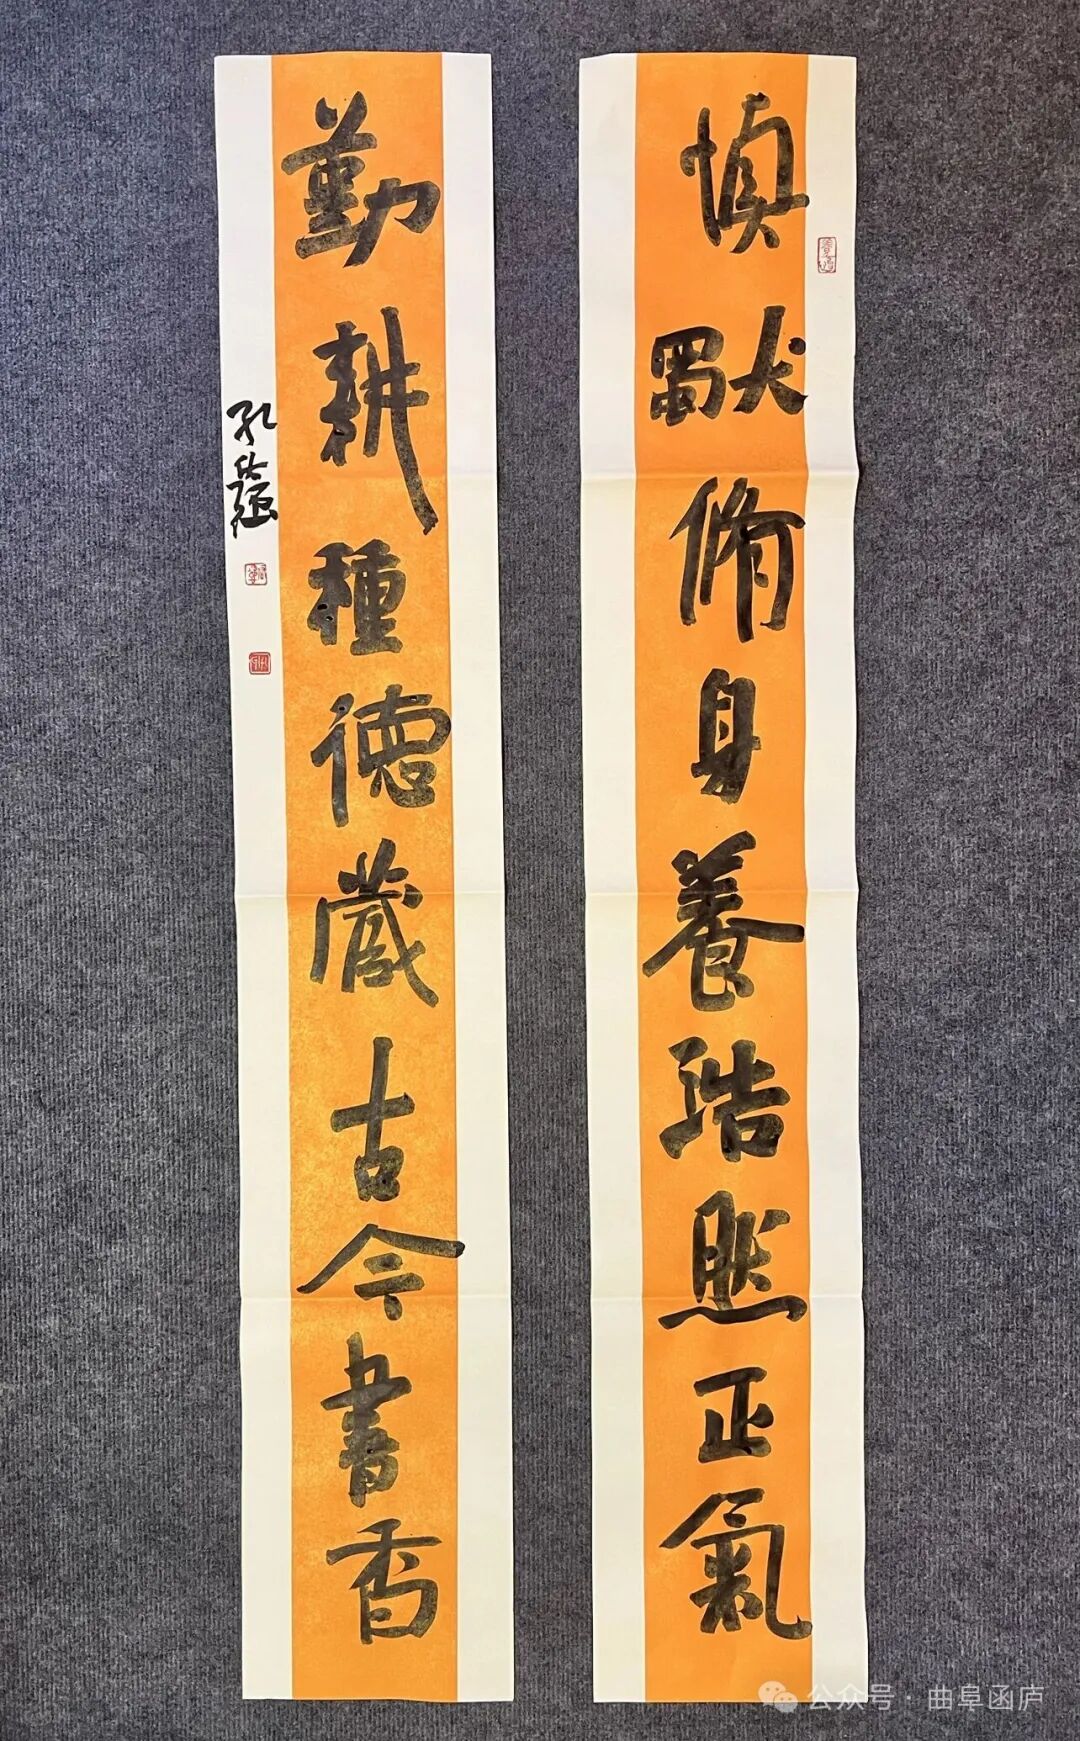 慎獨修身養浩然正氣
勤耕種德藏古今書香
公众号·曲阜函庐